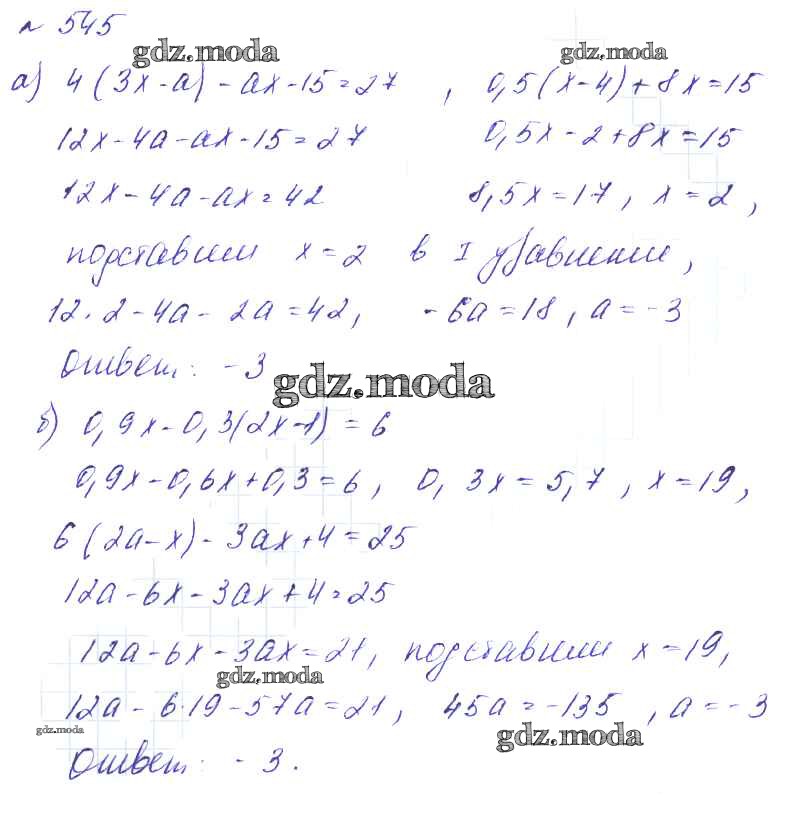 № 545
gdz.moda gdz.moda
а) 4(3x-a)-ax-15=27, 0,5(x-4)+8x=15
gdz.moda gdz.moda
12x-4a-ax-15=27 0,5x-2+8x=15
12x-4a-ax=42 8,5x=17, x=2,
подставим x=2 в I уравнение,
12·2-4a-2a=42, -6a=18, a=-3
Ответ: -3
gdz.moda
б) 0,9x-0,3(2x-1)=6
0,9x-0,6x+0,3=6, 0,3x=5,7, x=19,
6(2a-x)-3ax+4=25
12a-6x-3ax+4=25
12a-6x-3ax=21, подставим x=19,
gdz.moda
12a-6·19-57a=21, 45a=-135, a=-3
gdz.moda gdz.moda
Ответ: -3.